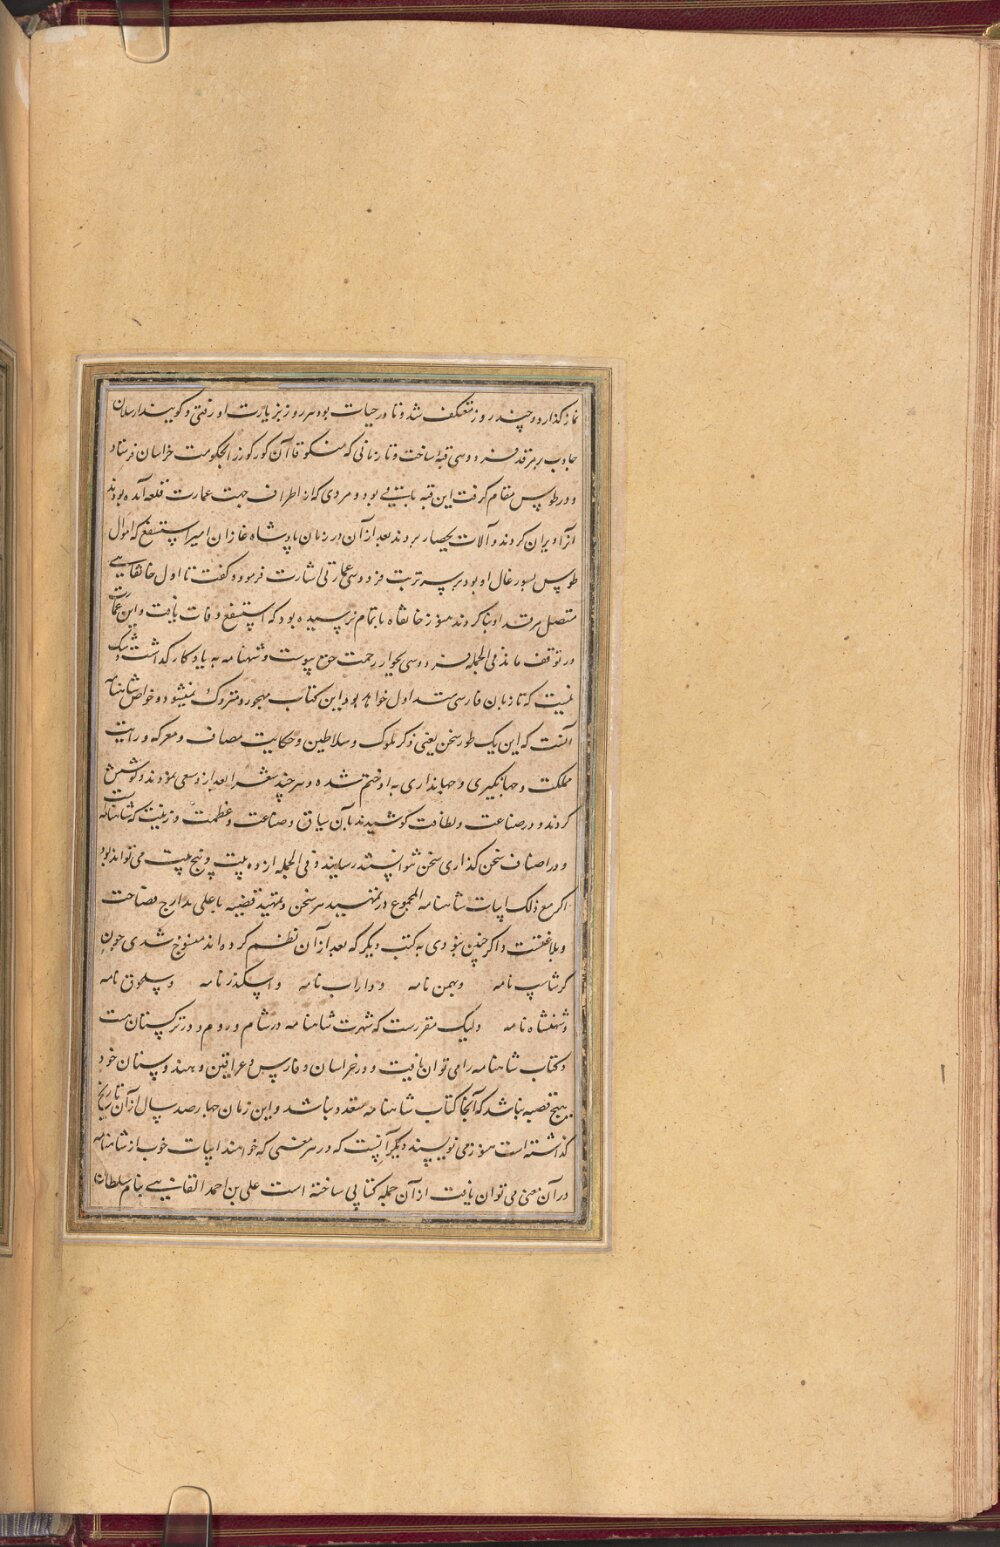 نماز گذارد و چند روز معتکف شد و تا در حیات بود هر روز بزیارت او رفتی و گویند ارسلان
جاذب بر مرقد فردوسی قبهٔ ساخت و تا زمانی که منکوقاآن کورکوز را بحکومت خراسان فرستاد
و در طوس مقام گرفت این قبه باقی بود و مردمی که از اطراف جهت عمارت قلعه آمده بودند
آنرا ویران کردند و آلات بحصار بردند بعد از آن در زمان پادشاه غازان امیر ایسنقتغ که اموال
طوس بسورغال او بود بر سر تربت فردوسی عمارتی اشارت فرموده گفت تا اول خانقاهی
متصل مرقد او بنا کردند هنوز خانقاه باتمام نرسیده بود که ایسنقتغ وفات یافت و این عمارت
در توقف ماند فی الجمله فردوسی بجوار رحمت حق پیوست و شهنامه به یادگار گذاشت و شک
نیست که تا زبان فارسی متداول خواهد بود این کتاب مهجور و متروک نمیشود و خواص شاهنامه
آنست که این یک طور سخن یعنی ذکر ملوک و سلاطین و حکایت مصاف و معرکه و رایت
مملکت و جهانگیری و جهانداری به او ختم شده و هر چند شعرا بعد از وسعی نمودند و کوشش
کردند و در صناعت و لطافت کوشیدند بآن سیاق و صناعت و عظمت و زینت که شاهنامه است
و در اصناف سخن گذاری سخن نتوانستند رسانید و فی الجمله از ده بیت و پنج بیت می تواند بود
اگر مع ذلک ابیات شاهنامه المجموع در تمهید هر سخن و تمهید قضیه با علی مدارج فصاحت
و بلاغتست و اگر چنین نبودی به کتب دیگر که بعد از آن نظم کرده اند منسوخ شدی چون
گرشاسپ نامه و بهمن نامه و داراب نامه و اسکندر نامه و سلجوق نامه
و شهنشاه نامه ولیک مقررست که شهرت شاهنامه در شام و روم و در ترکستان هست
و کتاب شاهنامه را می توان یافت و در خراسان و فارس و عراقین و هندوستان خود
هیچ قصبه نباشد که آنجا کتاب شاهنامه متعدد نباشد و این زمان چهارصد سال از آن تاریخ
گذشته است هنوز می نویسند دیگر آنست که در هر معنی که خواهند ابیات خوب از شاهنامه
در آن معنی می توان یافت از آن جمله کتابی ساخته است علی بن احمد القاینی بنام سلطان